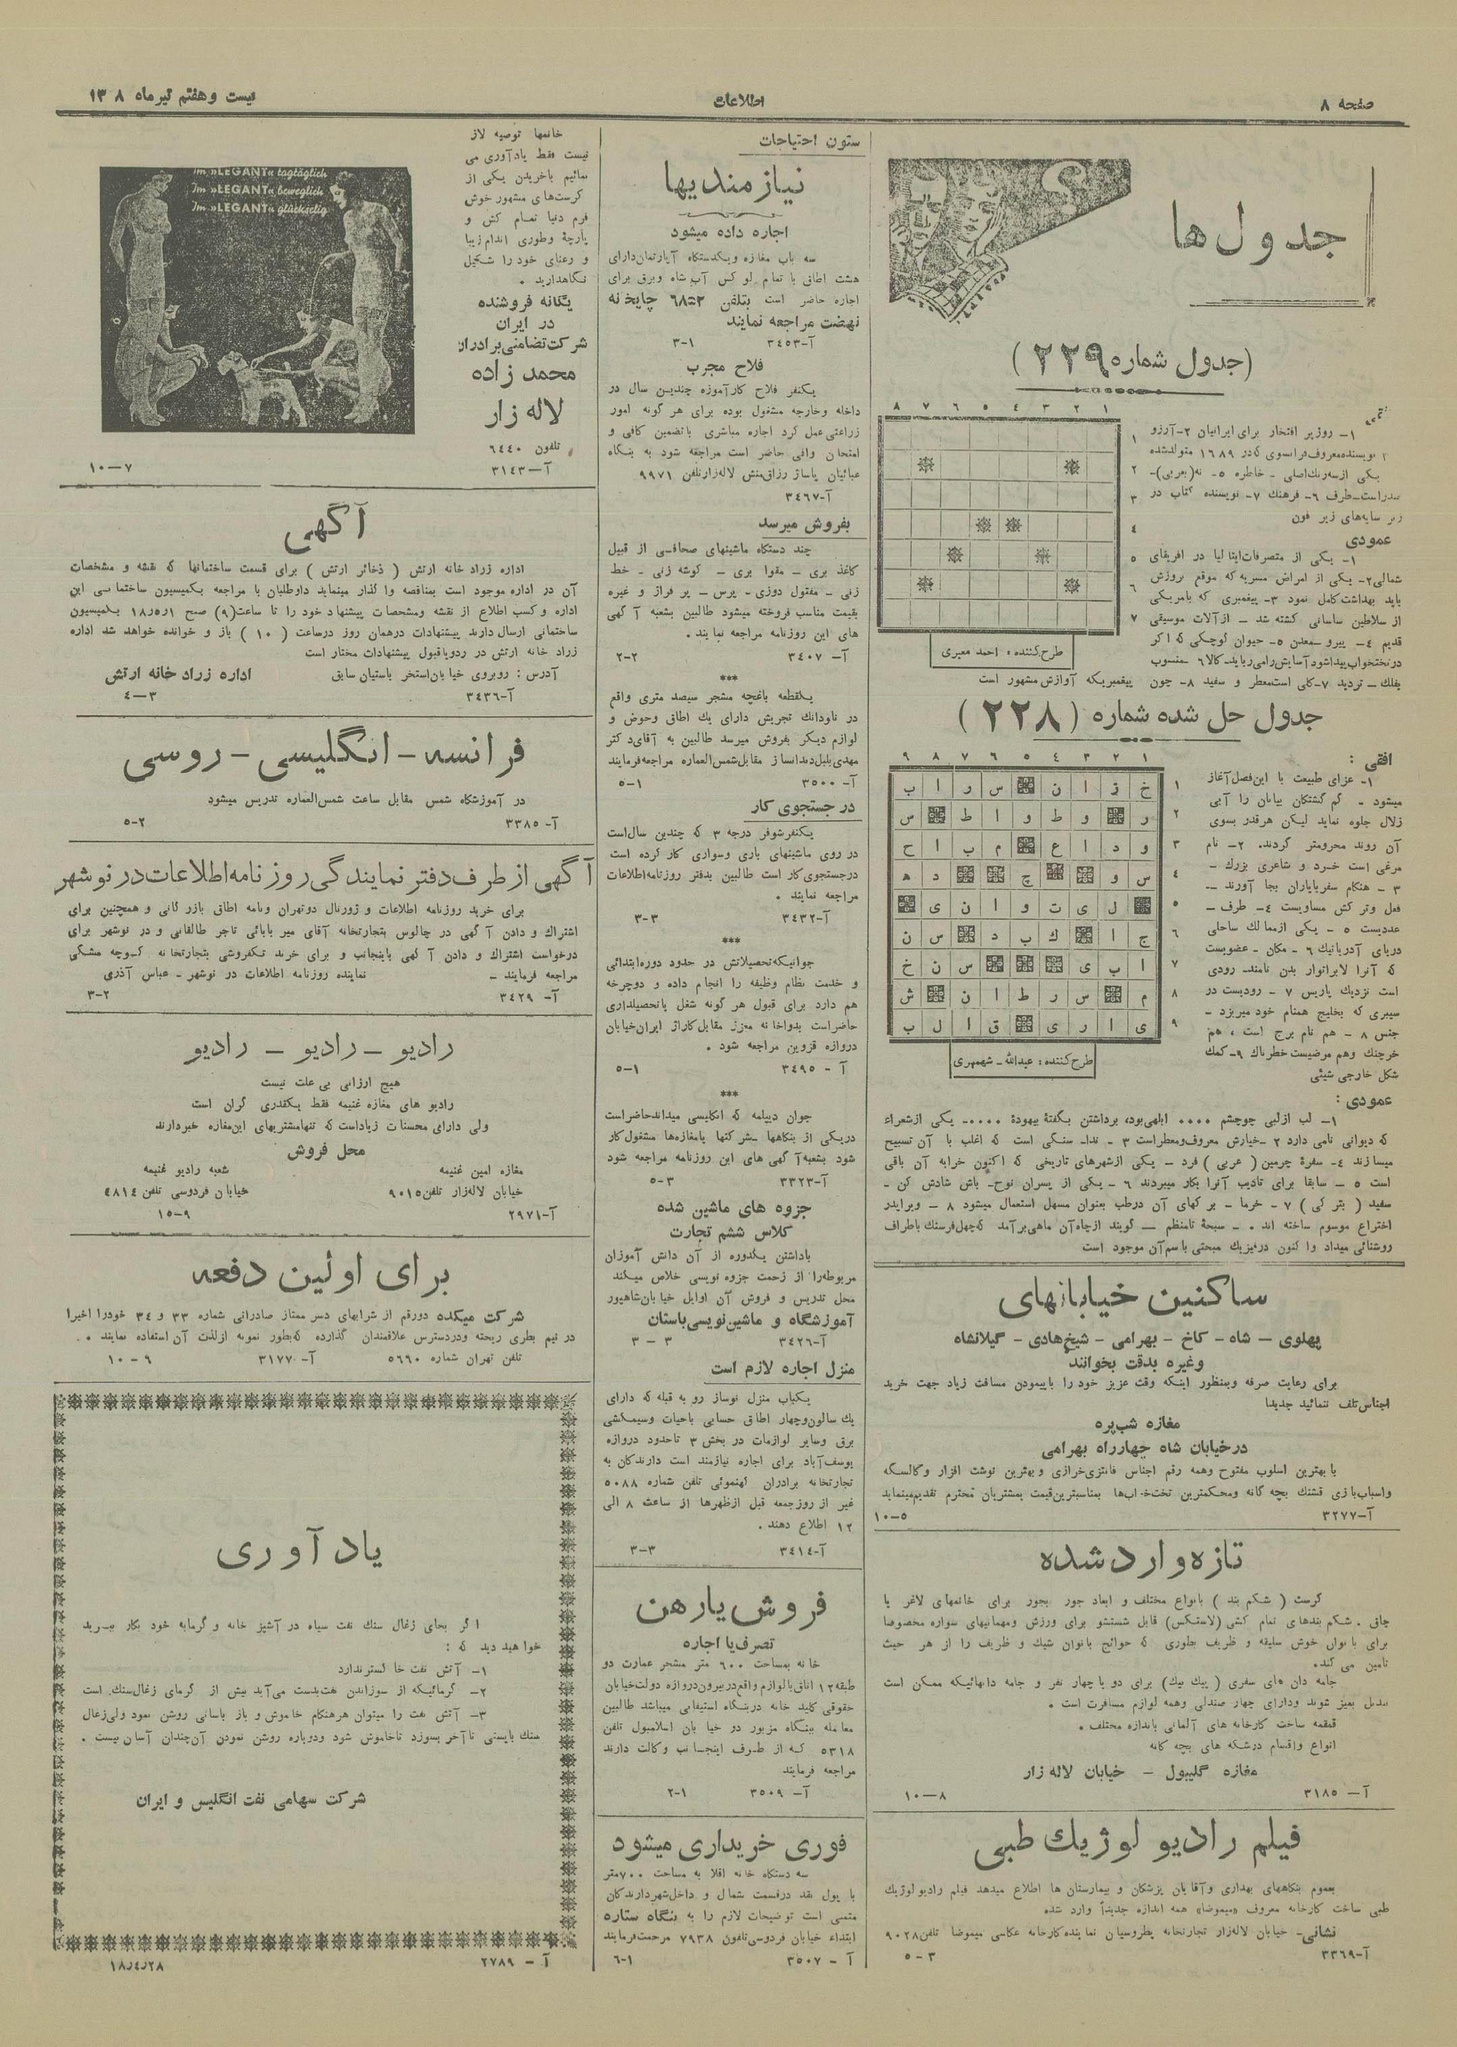 صفحه ۸
اطلاعات
بیست و هفتم تیرماه ۱۳۰۸
جدول ها
(جدول شماره ۲۲۹)
۱ ۲ ۳ ۴ ۵ ۶ ۷ ۸
۱- روز پر افتخار برای ایرانیان ۲- آرزو
نویسنده معروف فرانسوی که در ۱۶۸۹ متولد شده
یکی از سه رنگ اصلی - خاطره ۵- نه (بعربی)-
طرف ۶- فرهنگ ۷- نویسنده کتاب در
زیر سایه‌های زیر فون
عمودی
۱- یکی از متصرفات ایتالیا در افریقای
شمالی ۲- یکی از امراض مسریه که موقع بروزش
باید بهداشت کامل نمود ۳- پیغمبری که بامر یکی
از سلاطین ساسانی کشته شد - از آلات موسیقی
قدیم ۴- پیرو - معدن ۵- حیوان کوچکی که اگر
در تختخواب پیدا شود آسایش را می‌رباید - کالا ۶- منسوب
بفلك - تردید ۷- گلی است معطر و سفید ۸- چون پیغمبریکه آوازش مشهور است
طرح کننده : احمد معیری
جدول حل شده شماره (۲۲۸)
۱ ۲ ۳ ۴ ۵ ۶ ۷ ۸ ۹
خ ز ا ن س ر ا ب
ر و ط و ا ط س
و د ا ع م ب ا ح
س و چ د ه
ل ی ت و ا ن ی
ج ا ك ب د س ن
ا ب ی س ن خ
م س ر ط ا ن ش
ی ا ر ی ق ا ل ب
افقی :
۱- عزای طبیعت با این فصل آغاز
میشود - گم گشتگان بیابان را آبی
زلال جلوه نماید لیکن هر قدر بسوی
آن روند محرومتر گردند. ۲- نام
مرغی است خرد و شاعری بزرك -
۳- هنگام سفر یاران بجا آورند -
فعل وتر کش مساویست ۴- طرف -
عددیست ۵- یکی از ممالك ساحلی
دریای آدریاتیك ۶- مکان - عضویست
که آنرا لابراتوار بدن نامند - رودی
است نزدیك پاریس ۷- رودیست در
سیبری که بخلیج همنام خود میریزد -
جنس ۸- هم نام برج است ، هم
خرچنك وهم مرضیست خطرناك ۹- کمك
شکل خارجی شیئی
طرح کننده : عبدالله - شهمهری
عمودی :
۱- لب از لبی چو چشم .... ابلهی بود، برداشتن بگفتهٔ بیهودهٔ .... - یکی از شعراء
که دیوانی نامی دارد ۲- خیارش معروف و معطر است ۳- ندا - سنگی است که اغلب با آن تسبیح
میسازند ۴- سفرهٔ چرمین (عربی) فرد - یکی از شهرهای تاریخی که اکنون خرابه آن باقی
است ۵- سابقا برای تادیب آنرا بکار میبردند ۶- یکی از پسران نوح - باش شادش کن -
سفید (بترکی) ۷- خرما - برگهای آن در طب بعنوان مسهل استعمال میشود ۸- و برایدر
اختراع موسوم ساخته اند - سبحهٔ نامنظم - گویند از چاه آن ماهی بر آمد که چهل فرسنك باطراف
روشنائی میداد و اکنون در فیزیك مبحثی باسم آن موجود است
ساکنین خیابانهای
پهلوی - شاه - کاخ - بهرامی - شیخ‌هادی - گیلانشاه
وغیره بدقت بخوانند
برای رعایت صرفه و بمنظور اینکه وقت عزیز خود را با پیمودن مسافت زیاد جهت خرید
اجناس تلف ننمائید جدیدا
مغازه شب‌پره
در خیابان شاه چهارراه بهرامی
با بهترین اسلوب مفتوح و همه رقم اجناس فانتزی خرازی و بهترین نوشت افزار و کالسگه
واسباب‌بازی قشنك بچه گانه و محکمترین تختخوابها بمناسبترین قیمت بمشتریان محترم تقدیم مینماید
آ-۳۲۷۷ ۱۰-۵
تازه وارد شده
کرست (شکم بند) بانواع مختلف و ابعاد جور بجور برای خانمهای لاغر یا
چاق . شکم بندهای تمام کشی (لاستکس) قابل شستشو برای ورزش و مهمانیهای سواره مخصوصا
برای بانوان خوش سلیقه و ظریف بطوری که حوائج بانوان شیك و ظریف را از هر حیث
تامین می کند.
جامه دان های سفری (پیك نيك) برای دو یا چهار نفر و جامه دانهائیکه ممکن است
تبدیل بمیز شوند و دارای چهار صندلی و همه لوازم مسافرت است .
قمقمه ساخت کارخانه های آلمانی باندازه مختلف .
انواع و اقسام درشکه های بچه گانه
مغازه گلیبول - خیابان لاله زار
آ-۳۱۸۵ ۱۰-۸
فیلم رادیو لوژیك طبی
بعموم بنگاههای بهداری و آقایان پزشکان و بیمارستان ها اطلاع میدهد فیلم رادیولوژیك
طبی ساخت کارخانه معروف «میموضا» همه اندازه جدیداً وارد شده
نشانی- خیابان لاله‌زار تجارتخانه پطروسیان نماینده کارخانه عکاسی میموضا تلفن ۹۰۲۸
آ-۳۳۶۹ ۵-۳
ستون احتیاجات
نیازمندیها
اجاره داده میشود
سه باب مغازه و یکدستگاه آپارتمان دارای
هشت اطاق با تمام لوکس آب شاه و برق برای
اجاره حاضر است بتلفن چاپخانه
نهضت مراجعه نمایند
آ-۳۴۵۳ ۳-۱
فلاح مجرب
یکنفر فلاح کارآموزه چندین سال در
داخله و خارجه مشغول بوده برای هر گونه امور
زراعتی عمل کرد اجاره مباشری با تضمین کافی و
امتحان وافی حاضر است مراجعه شود به بنگاه
عبائیان پاساژ رزاق‌منش لاله‌زار تلفن ۹۹۷۱
آ-۳۴۶۷
بفروش میرسد
چند دستگاه ماشینهای صحافی از قبیل
کاغذ بری - مقوا بری - گوشه زنی - خط
زنی - مفتول دوزی - پرس - پرفراژ و غیره
بقیمت مناسب فروخته میشود طالبین بشعبه آگهی
های این روزنامه مراجعه نمایند.
آ-۳۴۰۷ ۲-۲
***
یکقطعه باغچه مشجر سیصد متری واقع
در ناودانك تجریش دارای يك اطاق و حوض و
لوازم دیگر بفروش میرسد طالبین به آقای دکتر
مهدی بلبل دندانساز مقابل شمس‌العماره مراجعه فرمایند
آ-۳۵۰۰ ۵-۱
در جستجوی کار
یکنفر شوفر درجه ۳ که چندین سال است
در روی ماشینهای باری و سواری کار کرده است
در جستجوی کار است طالبین بدفتر روزنامه اطلاعات
مراجعه نمایند .
آ-۳۴۳۲ ۳-۳
***
جوانیکه تحصیلاتش در حدود دوره ابتدائی
و خدمت نظام وظیفه را انجام داده و دوچرخه
هم دارد برای قبول هر گونه شغل یا تحصیلداری
حاضر است بدواخانه معزز مقابل گاراژ ایران خیابان
دروازه قزوین مراجعه شود .
آ-۳۴۹۵ ۵-۱
***
جوان دیپلمه که انگلیسی میداند حاضر است
در یکی از بنگاهها شرکتها یا مغازه‌ها مشغول کار
شود بشعبه آگهی های این روزنامه مراجعه شود
آ-۳۳۲۳ ۵-۳
جزوه های ماشین شده
کلاس ششم تجارت
با داشتن یکدوره از آن دانش آموزان
مربوطه را از زحمت جزوه نویسی خلاص میکند
محل تدریس و فروش آن اوایل خیابان شاهپور
آموزشگاه و ماشین‌نویسی باستان
آ-۳۴۲۶ ۳-۳
منزل اجاره لازم است
یکباب منزل نوساز رو به قبله که دارای
يك سالون و چهار اطاق حسابی با حیات و سیمکشی
برق و سایر لوازمات در بخش ۳ تا حدود دروازه
یوسف‌آباد برای اجاره نیازمند است دارندگان به
تجارتخانه برادران تلفن شماره ۵۰۸۸
غیر از روز جمعه قبل از ظهرها از ساعت ۸ الی
۱۲ اطلاع دهند .
آ-۳۴۱۴ ۳-۳
فروش یا رهن
تصرف یا اجاره
خانه بمساحت ۶۰۰ متر مشجر عمارت دو
طبقه ۱۲ اتاق با لوازم واقع در بیرون دروازه دولت خیابان
حقوقی کلید خانه در بنگاه استیفائی میباشد طالبین
معامله ببنگاه مزبور دو خیابان اسلامبول تلفن
۵۳۱۸ که از طرف اینجانب وکالت دارند
مراجعه فرمایند
آ-۳۵۰۹ ۲-۱
فوری خریداری میشود
سه دستگاه خانه اقلا به مساحت ۷۰۰ متر
با پول نقد در قسمت شمال و داخل شهر دارندگان
متمنی است توضیحات لازم را به بنگاه ستاره
ابتداء خیابان فردوسی تلفون ۷۹۳۸ مرحمت فرمایند
آ-۳۵۰۷ ۶-۱
خانمها توصیه لازم
نیست فقط یادآوری می
نمائیم با خریدن یکی از
کرست‌های مشهور خوش
فرم دنیا تمام کش و
پارچهٔ و طوری اندام زیبا
و رعنای خود را شکیل
نگاهدارید .
یگانه فروشنده
در ایران
شرکت تضامنی برادران
محمد زاده
لاله زار
تلفون ۶۴۴۰
آ-۳۱۴۳ ۱۰-۷
Im »LEGANT« tagtäglich
Im »LEGANT« beweglich
Im »LEGANT« glückselig
آگهی
اداره زراد خانه ارتش (ذخائر ارتش) برای قسمت ساختمانها که نقشه و مشخصات
آن در اداره موجود است بمناقصه واگذار مینماید داوطلبان با مراجعه بکمیسیون ساختمانی این
اداره و کسب اطلاع از نقشه و مشخصات پیشنهاد خود را تا ساعت (۹) صبح بکمیسیون
ساختمانی ارسال دارند پیشنهادات در همان روز در ساعت (۱۰) باز و خوانده خواهد شد اداره
زراد خانه ارتش در رد و یا قبول پیشنهادات مختار است
آدرس : روبروی خیابان استخر باستیان سابق اداره زراد خانه ارتش
آ-۳۴۳۶ ۴-۳
فرانسه - انگلیسی - روسی
در آموزشگاه شمس مقابل ساعت شمس‌العماره تدریس میشود
آ-۳۳۸۵ ۵-۲
آگهی از طرف دفتر نمایندگی روزنامه اطلاعات در نوشهر
برای خرید روزنامه اطلاعات و ژورنال دوتهران ونامه اطاق بازرگانی و همچنین برای
اشتراك و دادن آگهی در چالوس بتجارتخانه آقای میر بابائی تاجر طالقانی و در نوشهر برای
درخواست اشتراك و دادن آگهی باینجانب و برای خرید تکفروشی بتجارتخانه کوچه مشکی
مراجعه فرمایند - نماینده روزنامه اطلاعات در نوشهر - عباس آذری
آ-۳۴۲۹ ۳-۲
رادیو - رادیو - رادیو
هیچ ارزانی بی علت نیست
رادیو های مغازه غنیمه فقط یکقدری گران است
ولی دارای محسنات زیاد است که تنها مشتریهای این مغازه خبر دارند
محل فروش
مغازه امین غنیمه شعبه رادیو غنیمه
خیابان لاله‌زار تلفن ۹۰۱۵ خیابان فردوسی تلفن ۴۸۱۴
آ-۲۹۷۱ ۱۵-۹
برای اولین دفعه
شرکت میکده دورقم از شرابهای دسر ممتاز صادراتی شماره ۳۳ و ۳۴ خود را اخیرا
در نیم بطری ریخته و در دسترس علاقمندان گذارده که بطور نمونه از لذت آن استفاده نمایند .
تلفن تهران شماره ۵۶۶۰ آ-۳۱۷۷ ۱۰-۶
یاد آوری
اگر بجای زغال سنك نفت سیاه در آشپز خانه و گرمابه خود بکار ببرید
خواهید دید که :
۱- آتش نفت خاکستر ندارد
۲- گرمائیکه از سوزاندن نفت بدست می‌آید بیش از گرمای زغال سنك است
۳- آتش نفت را میتوان هر هنگام خاموش و باز باسانی روشن نمود ولی زغال
سنك بایستی تا آخر بسوزد تا خاموش شود و دوباره روشن نمودن آن چندان آسان نیست .
شرکت سهامی نفت انگلیس و ایران
آ-۲۷۸۹ ۱۸ر۴ر۲۸